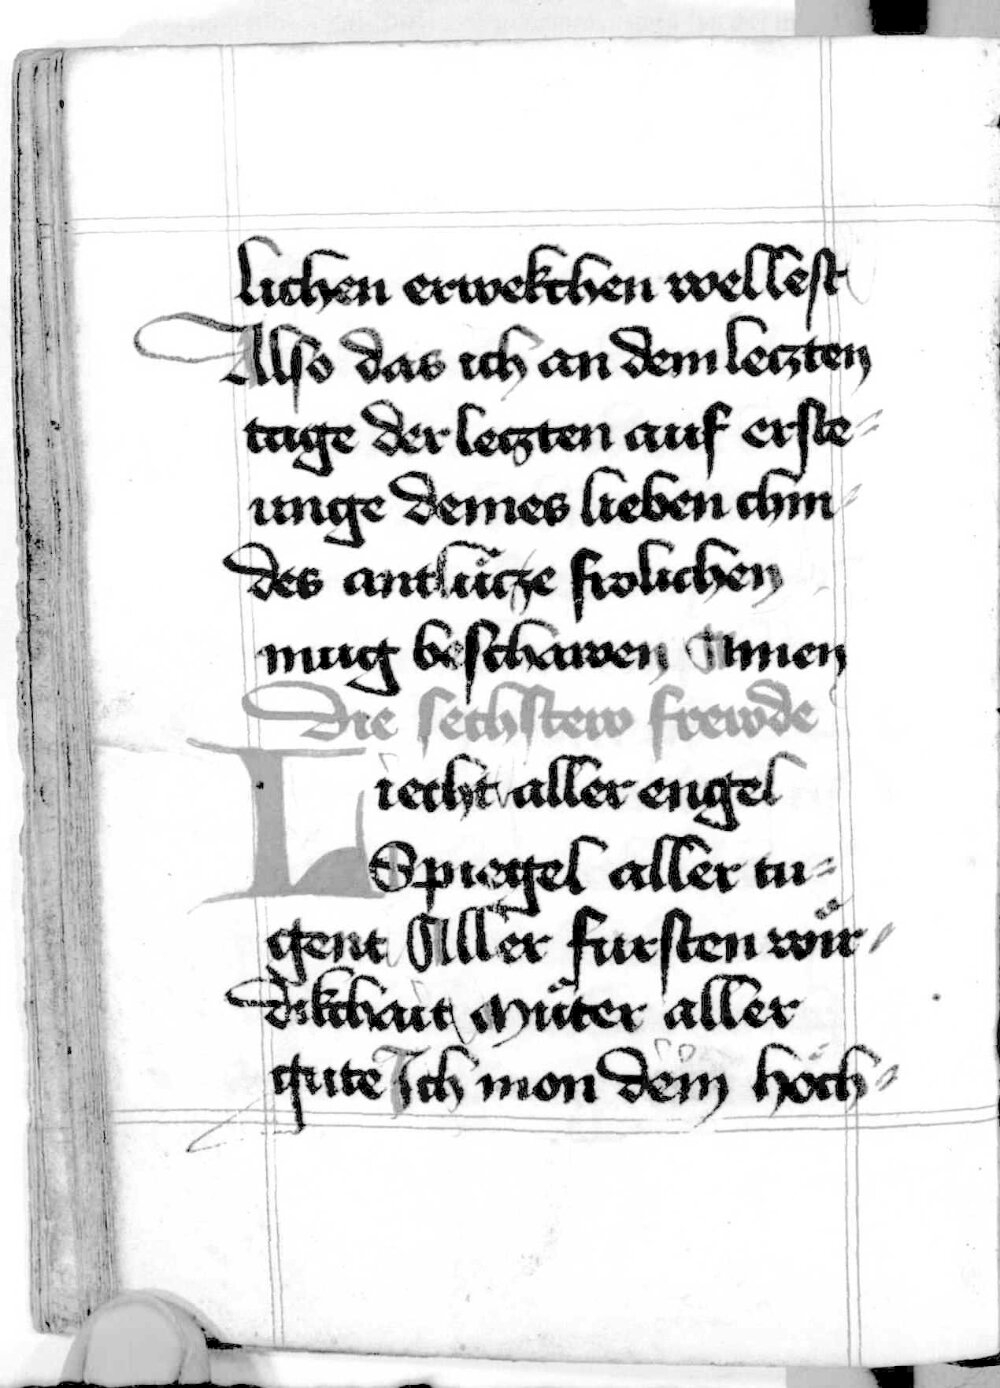 lichen erwekchen wellest
Also das ich an dem letzten
tage der letzten auf erste-
unge deines lieben chin-
des antlütze frolichen
mug beschawen Amen
Die sechstew frewde
Liecht aller engel
Spiegel aller tu-
gent Aller fursten wür-
dikchait Müter aller
gute Ich mon dein höch-